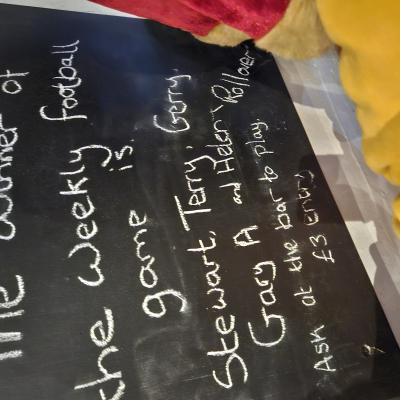 The winner of
the weekly football
game is
Stewart, Terry, Gerry,
Gary A and Helen
Ask at the bar to play
£3 entry